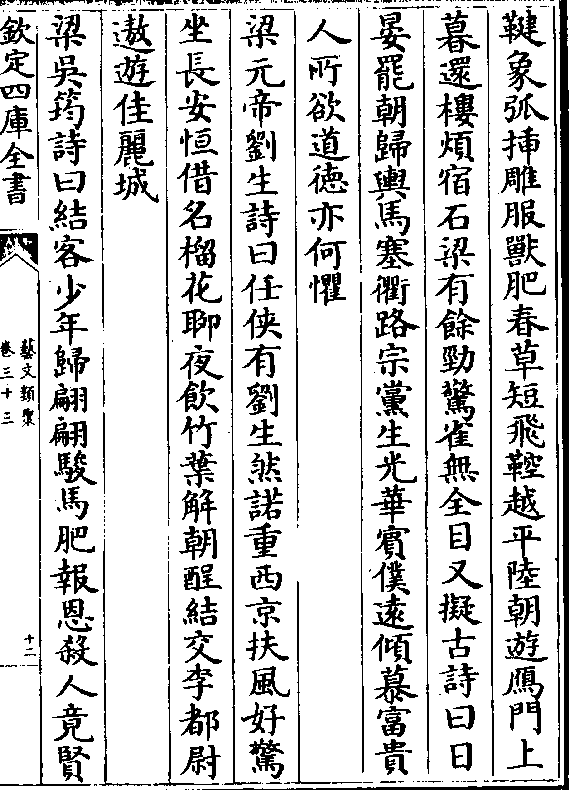 鞬象弧揷雕服獸肥春草短飛鞚越平陸朝遊鴈門上
暮還樓煩宿石梁有餘勁驚雀無全目又擬古詩曰日
晏罷朝歸輿馬塞衢路宗黨生光華賓僕遠傾慕富貴
人所欲道德亦何懼
梁元帝劉生詩曰任俠有劉生然諾重西京扶風好驚
坐長安恒借名榴花聊夜飲竹葉解朝酲結交李都尉
遨遊佳麗城
梁吳筠詩曰結客少年歸翩翩駿馬肥報恩殺人竟賢
欽定四庫全書
藝文類聚
卷三十三
十二